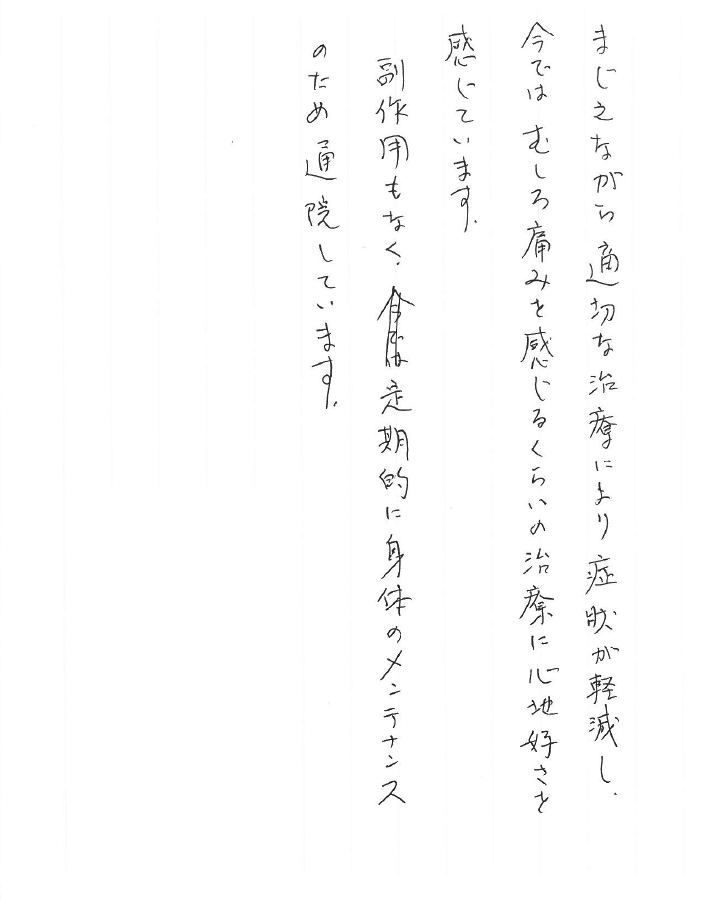 まじえながら適切な治療により症状が軽減し、
今ではむしろ痛みを感じるくらいの治療に心地好さを
感じています。
副作用もなく、定期的に身体のメンテナンス
のため通院しています。